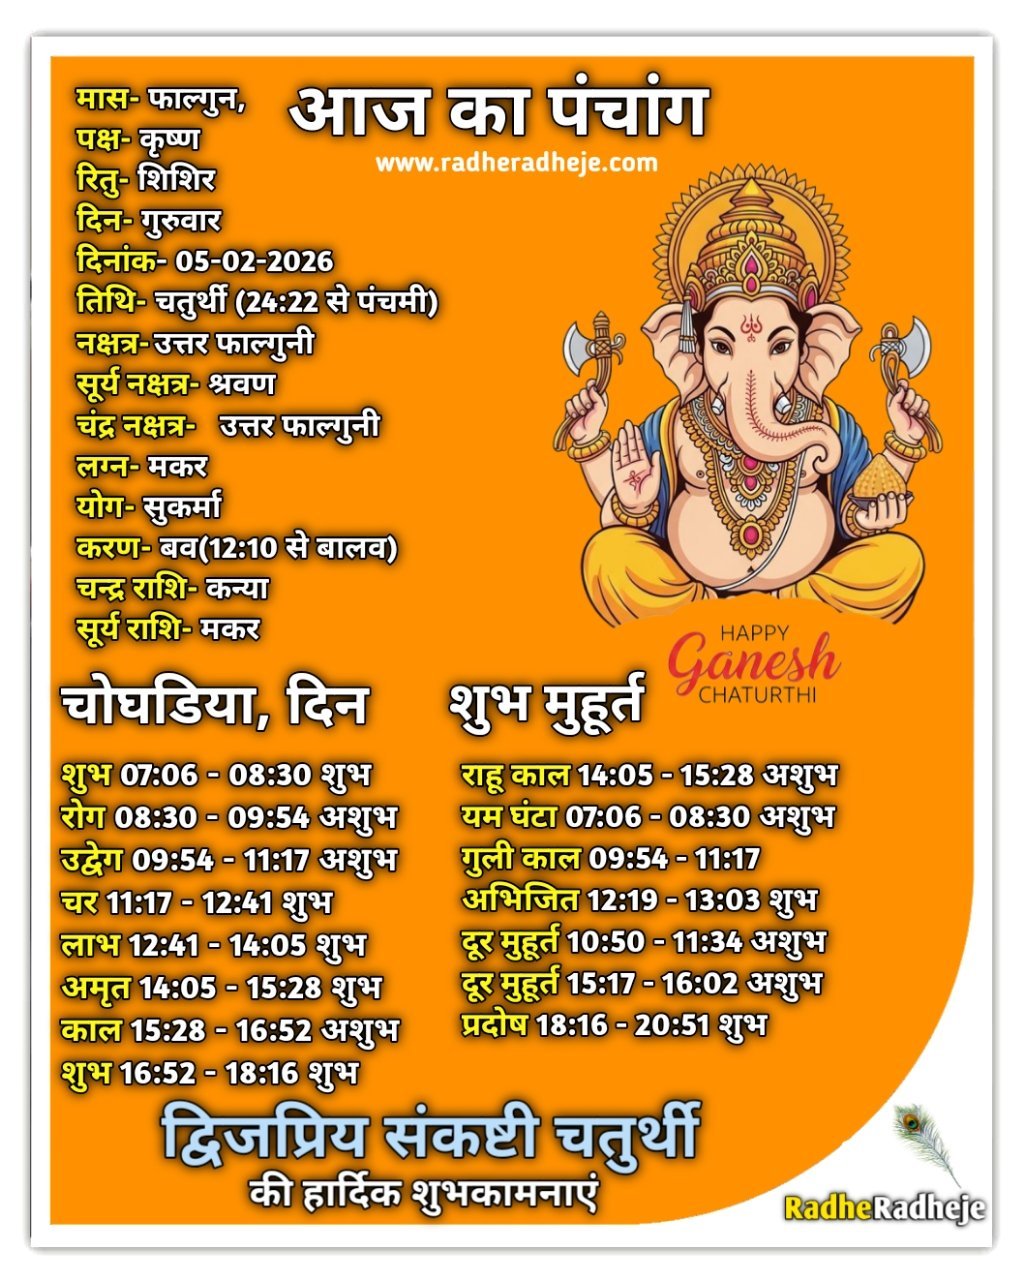 आज का पंचांग
www.radheradheje.com
मास- फाल्गुन,
पक्ष- कृष्ण
रितु- शिशिर
दिन- गुरुवार
दिनांक- 05-02-2026
तिथि- चतुर्थी (24:22 से पंचमी)
नक्षत्र- उत्तर फाल्गुनी
सूर्य नक्षत्र- श्रवण
चंद्र नक्षत्र- उत्तर फाल्गुनी
लग्न- मकर
योग- सुकर्मा
करण- बव(12:10 से बालव)
चन्द्र राशि- कन्या
सूर्य राशि- मकर
HAPPY
Ganesh
CHATURTHI
चोघडिया, दिन
शुभ 07:06 - 08:30 शुभ
रोग 08:30 - 09:54 अशुभ
उद्वेग 09:54 - 11:17 अशुभ
चर 11:17 - 12:41 शुभ
लाभ 12:41 - 14:05 शुभ
अमृत 14:05 - 15:28 शुभ
काल 15:28 - 16:52 अशुभ
शुभ 16:52 - 18:16 शुभ
शुभ मुहूर्त
राहू काल 14:05 - 15:28 अशुभ
यम घंटा 07:06 - 08:30 अशुभ
गुली काल 09:54 - 11:17
अभिजित 12:19 - 13:03 शुभ
दूर मुहूर्त 10:50 - 11:34 अशुभ
दूर मुहूर्त 15:17 - 16:02 अशुभ
प्रदोष 18:16 - 20:51 शुभ
द्विजप्रिय संकष्टी चतुर्थी
की हार्दिक शुभकामनाएं
RadheRadheje